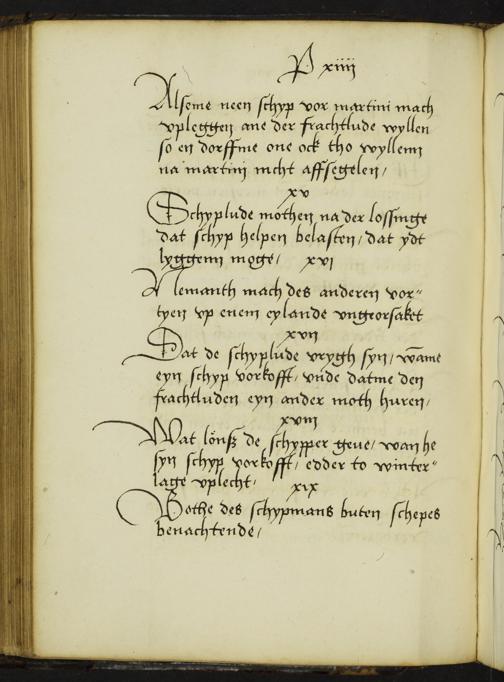 P xiiij
Alseme neen schyp vor martini mach
vpleggen ane der frachtlude wyllen
so en dorffme one ock tho wyllenn
na martini nicht affsegelen/
xv
Schyplude mothen na der lossinge
dat schyp helpen belasten/ dat ydt
lyggenn moge/ xvi
Nemanth mach des anderen vor"
tyen vp enem eylande vngeorsaket
xvii
Dat de schyplude vrygh syn/ wāme
eyn schyp vorkofft/ vnde datme den
frachtluden eyn ander moth huren/
xviii
Wat lönß de schypper geue/ wan he
syn schyp vorkofft/ edder to winter"
lage vplecht/
xix
Bothe des schypmans buten schepes
benachtende/